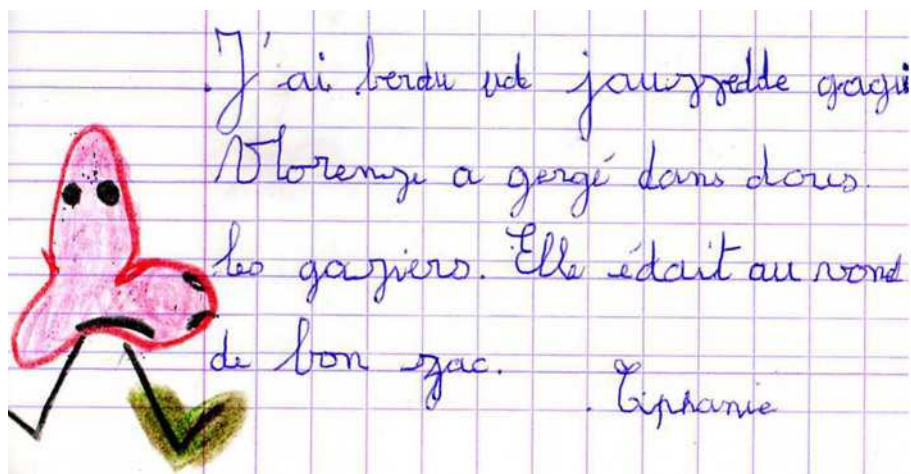 J'ai berdu ude jauzzedde gagui
Vlorenze a gergé dans dous
les gaziers. Elle édait au vond
de bon zac.
Tiphanie